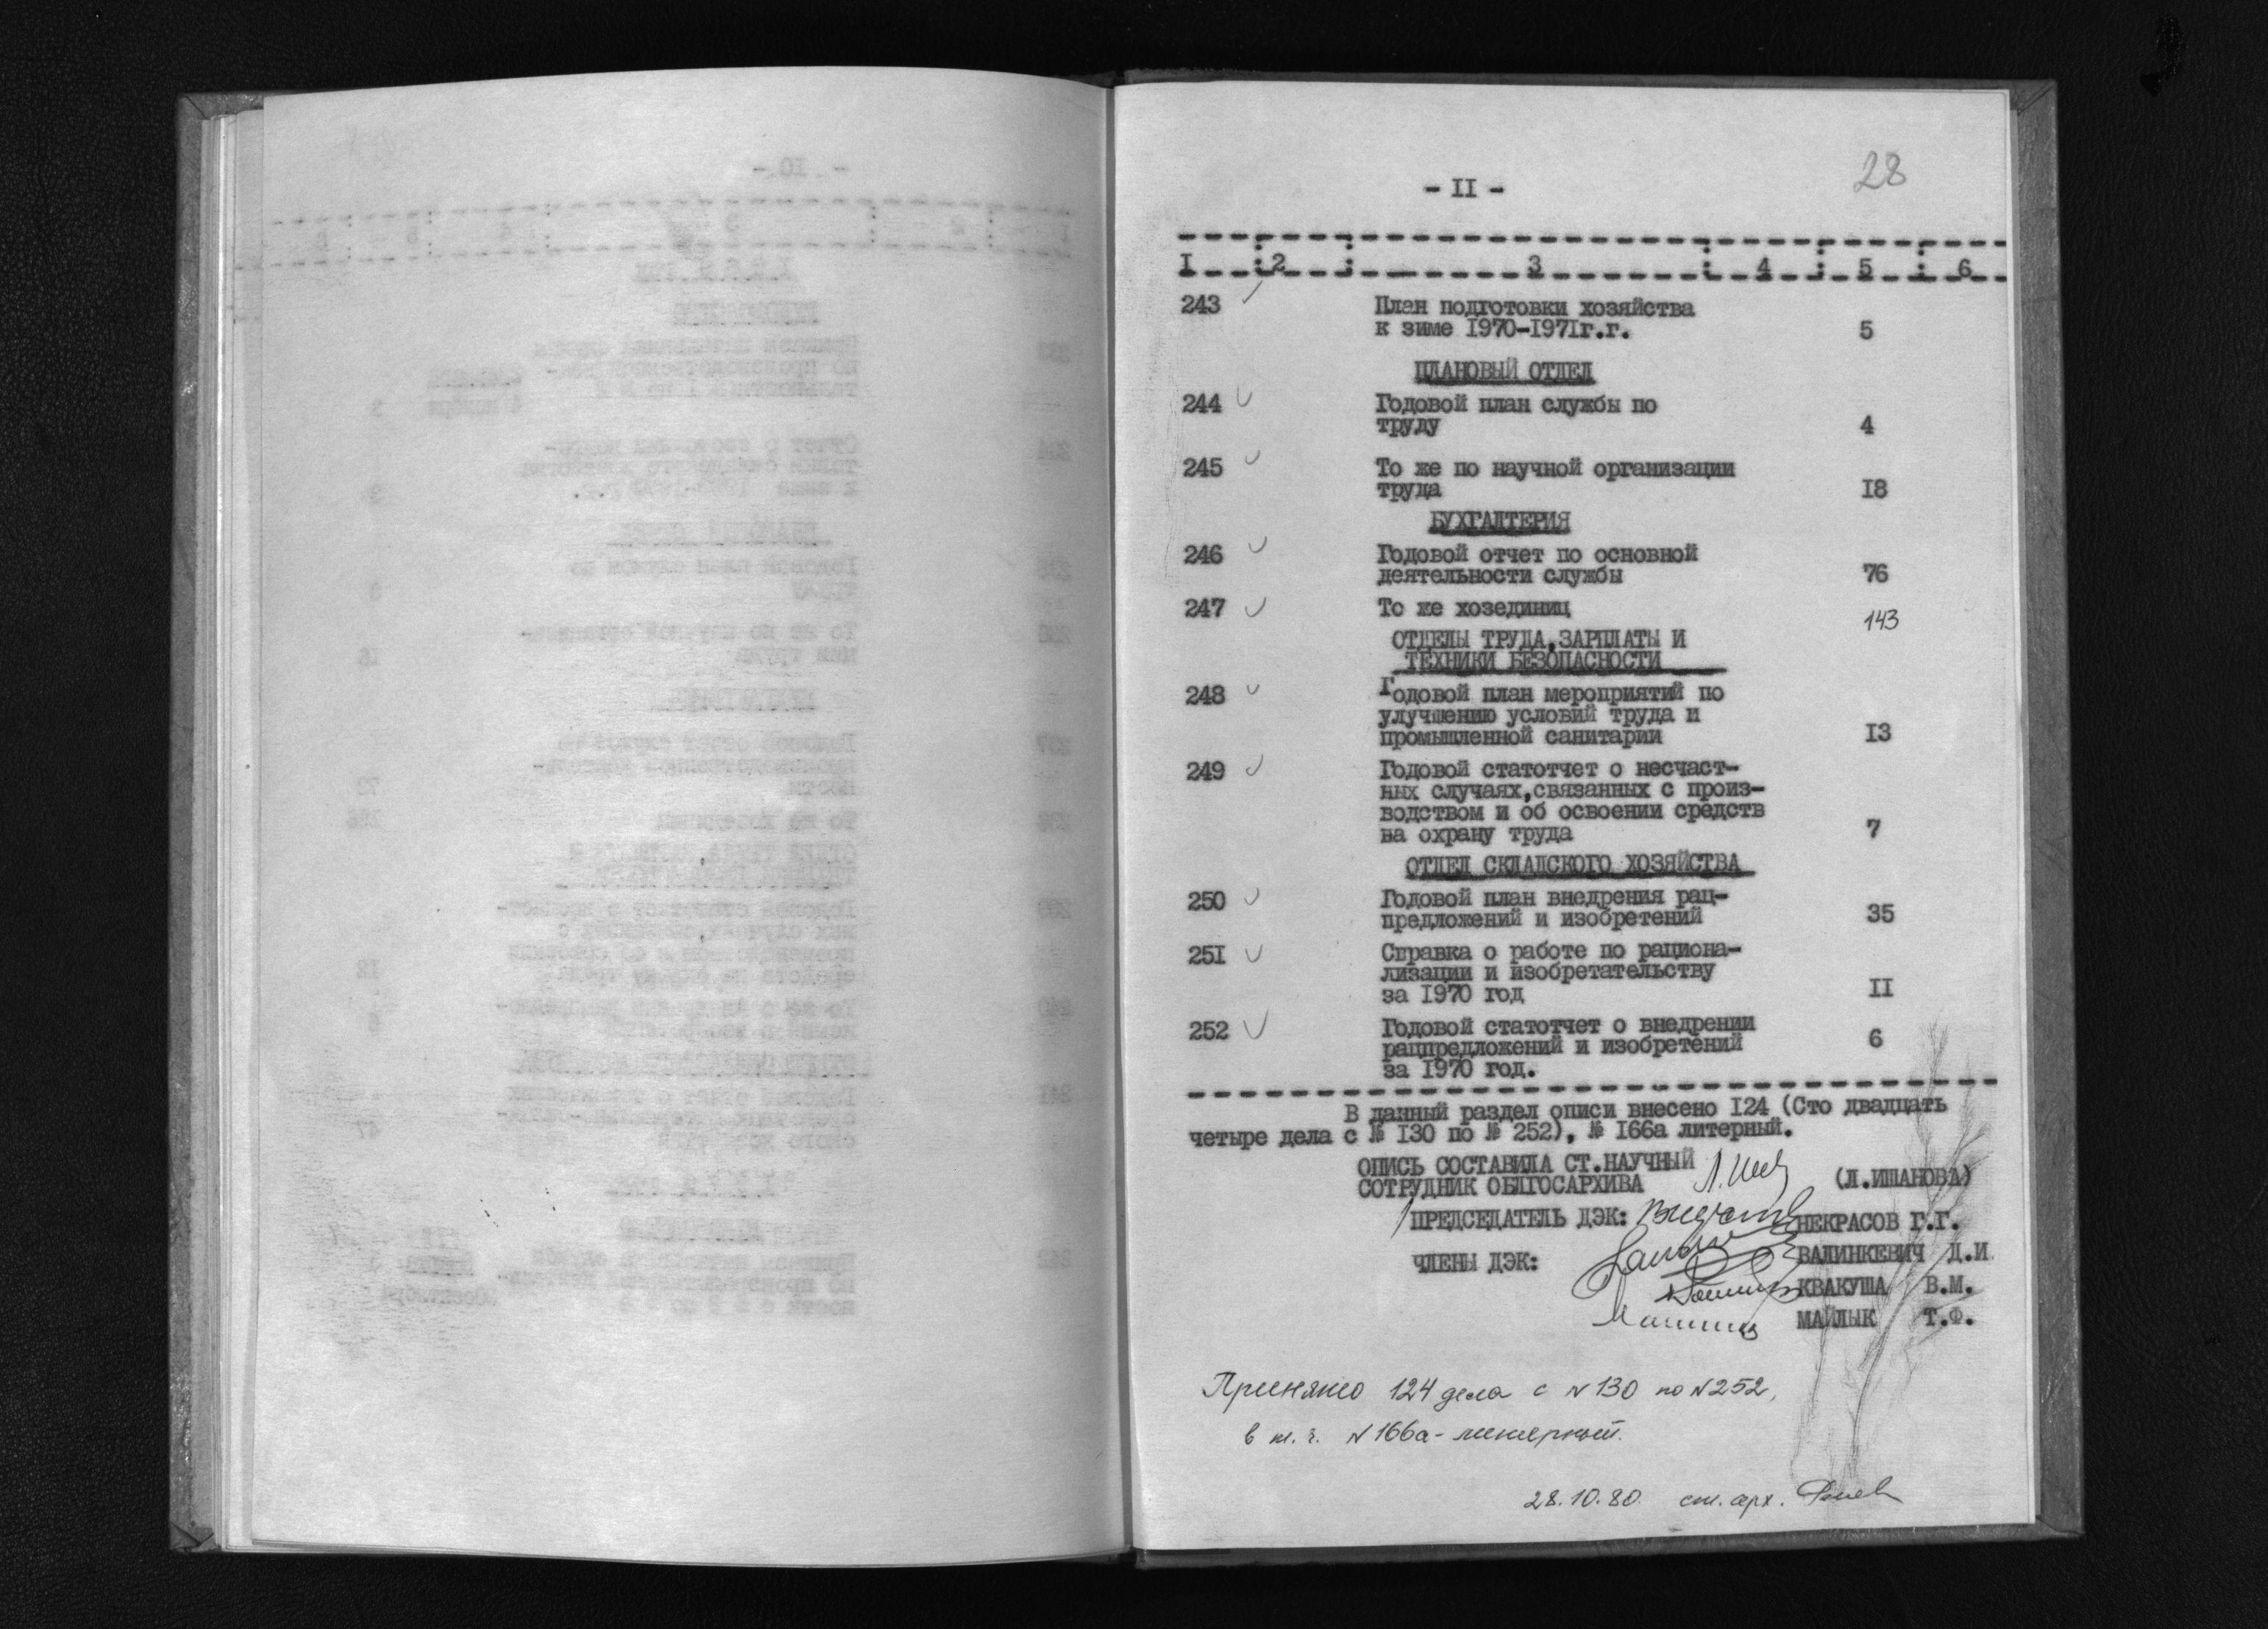 28
- II -
I 2 3 4 5 6
243 План подготовки хозяйства
к зиме 1970-1971г.г. 5
ПЛАНОВЫЙ ОТДЕЛ
244 Годовой план службы по
труду 4
245 То же по научной организации
труда 18
БУХГАЛТЕРИЯ
246 Годовой отчет по основной
деятельности службы 76
247 То же хозединиц 143
ОТДЕЛЫ ТРУДА, ЗАРПЛАТЫ И
ТЕХНИКИ БЕЗОПАСНОСТИ
248 Годовой план мероприятий по
улучшению условий труда и
промышленной санитарии 13
249 Годовой статотчет о несчаст-
ных случаях, связанных с произ-
водством и об освоении средств
на охрану труда 7
ОТДЕЛ СКЛАДСКОГО ХОЗЯЙСТВА
250 Годовой план внедрения рац-
предложений и изобретений 35
251 Справка о работе по рациона-
лизации и изобретательству
за 1970 год II
252 Годовой статотчет о внедрении
рацпредложений и изобретений 6
за 1970 год.
В данный раздел описи внесено 124 (Сто двадцать
четыре дела с № 130 по № 252), № 166а литерный.
ОПИСЬ СОСТАВИЛА СТ.НАУЧНЫЙ
СОТРУДНИК ОБЛГОСАРХИВА (Л.ИШАНОВА)
ПРЕДСЕДАТЕЛЬ ДЭК: НЕКРАСОВ Г.Г.
ЧЛЕНЫ ДЭК: ВАЛИНКЕВИЧ Д.И
КВАКУША В.М.
МАЙЛЫК Т.Ф.
Принято 124 дела с N 130 по N 252,
в т. ч. N 166а - литерный.
28.10.80. ст. арх.